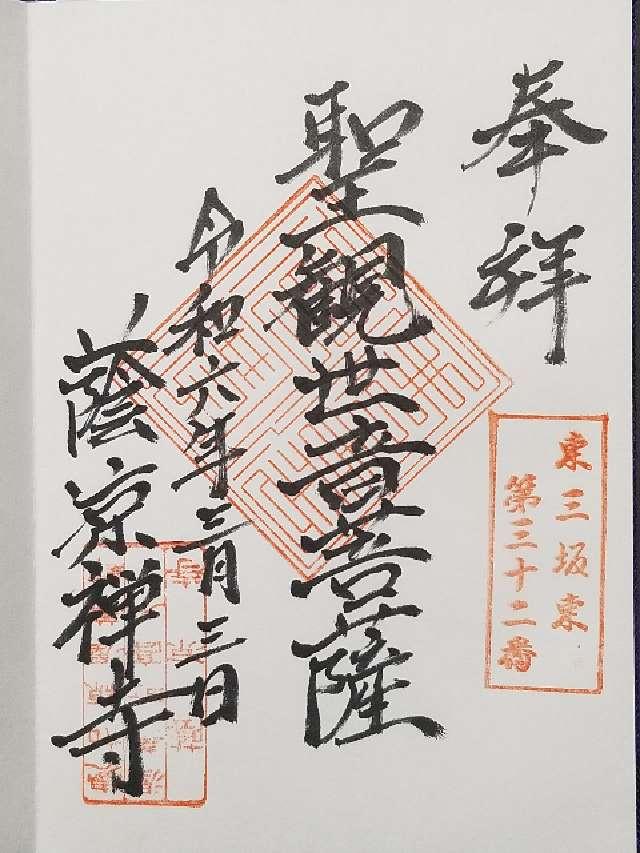 奉拝
東三坂東
第三十二番
聖観世音菩薩
令和六年三月三日
蔭凉禅寺